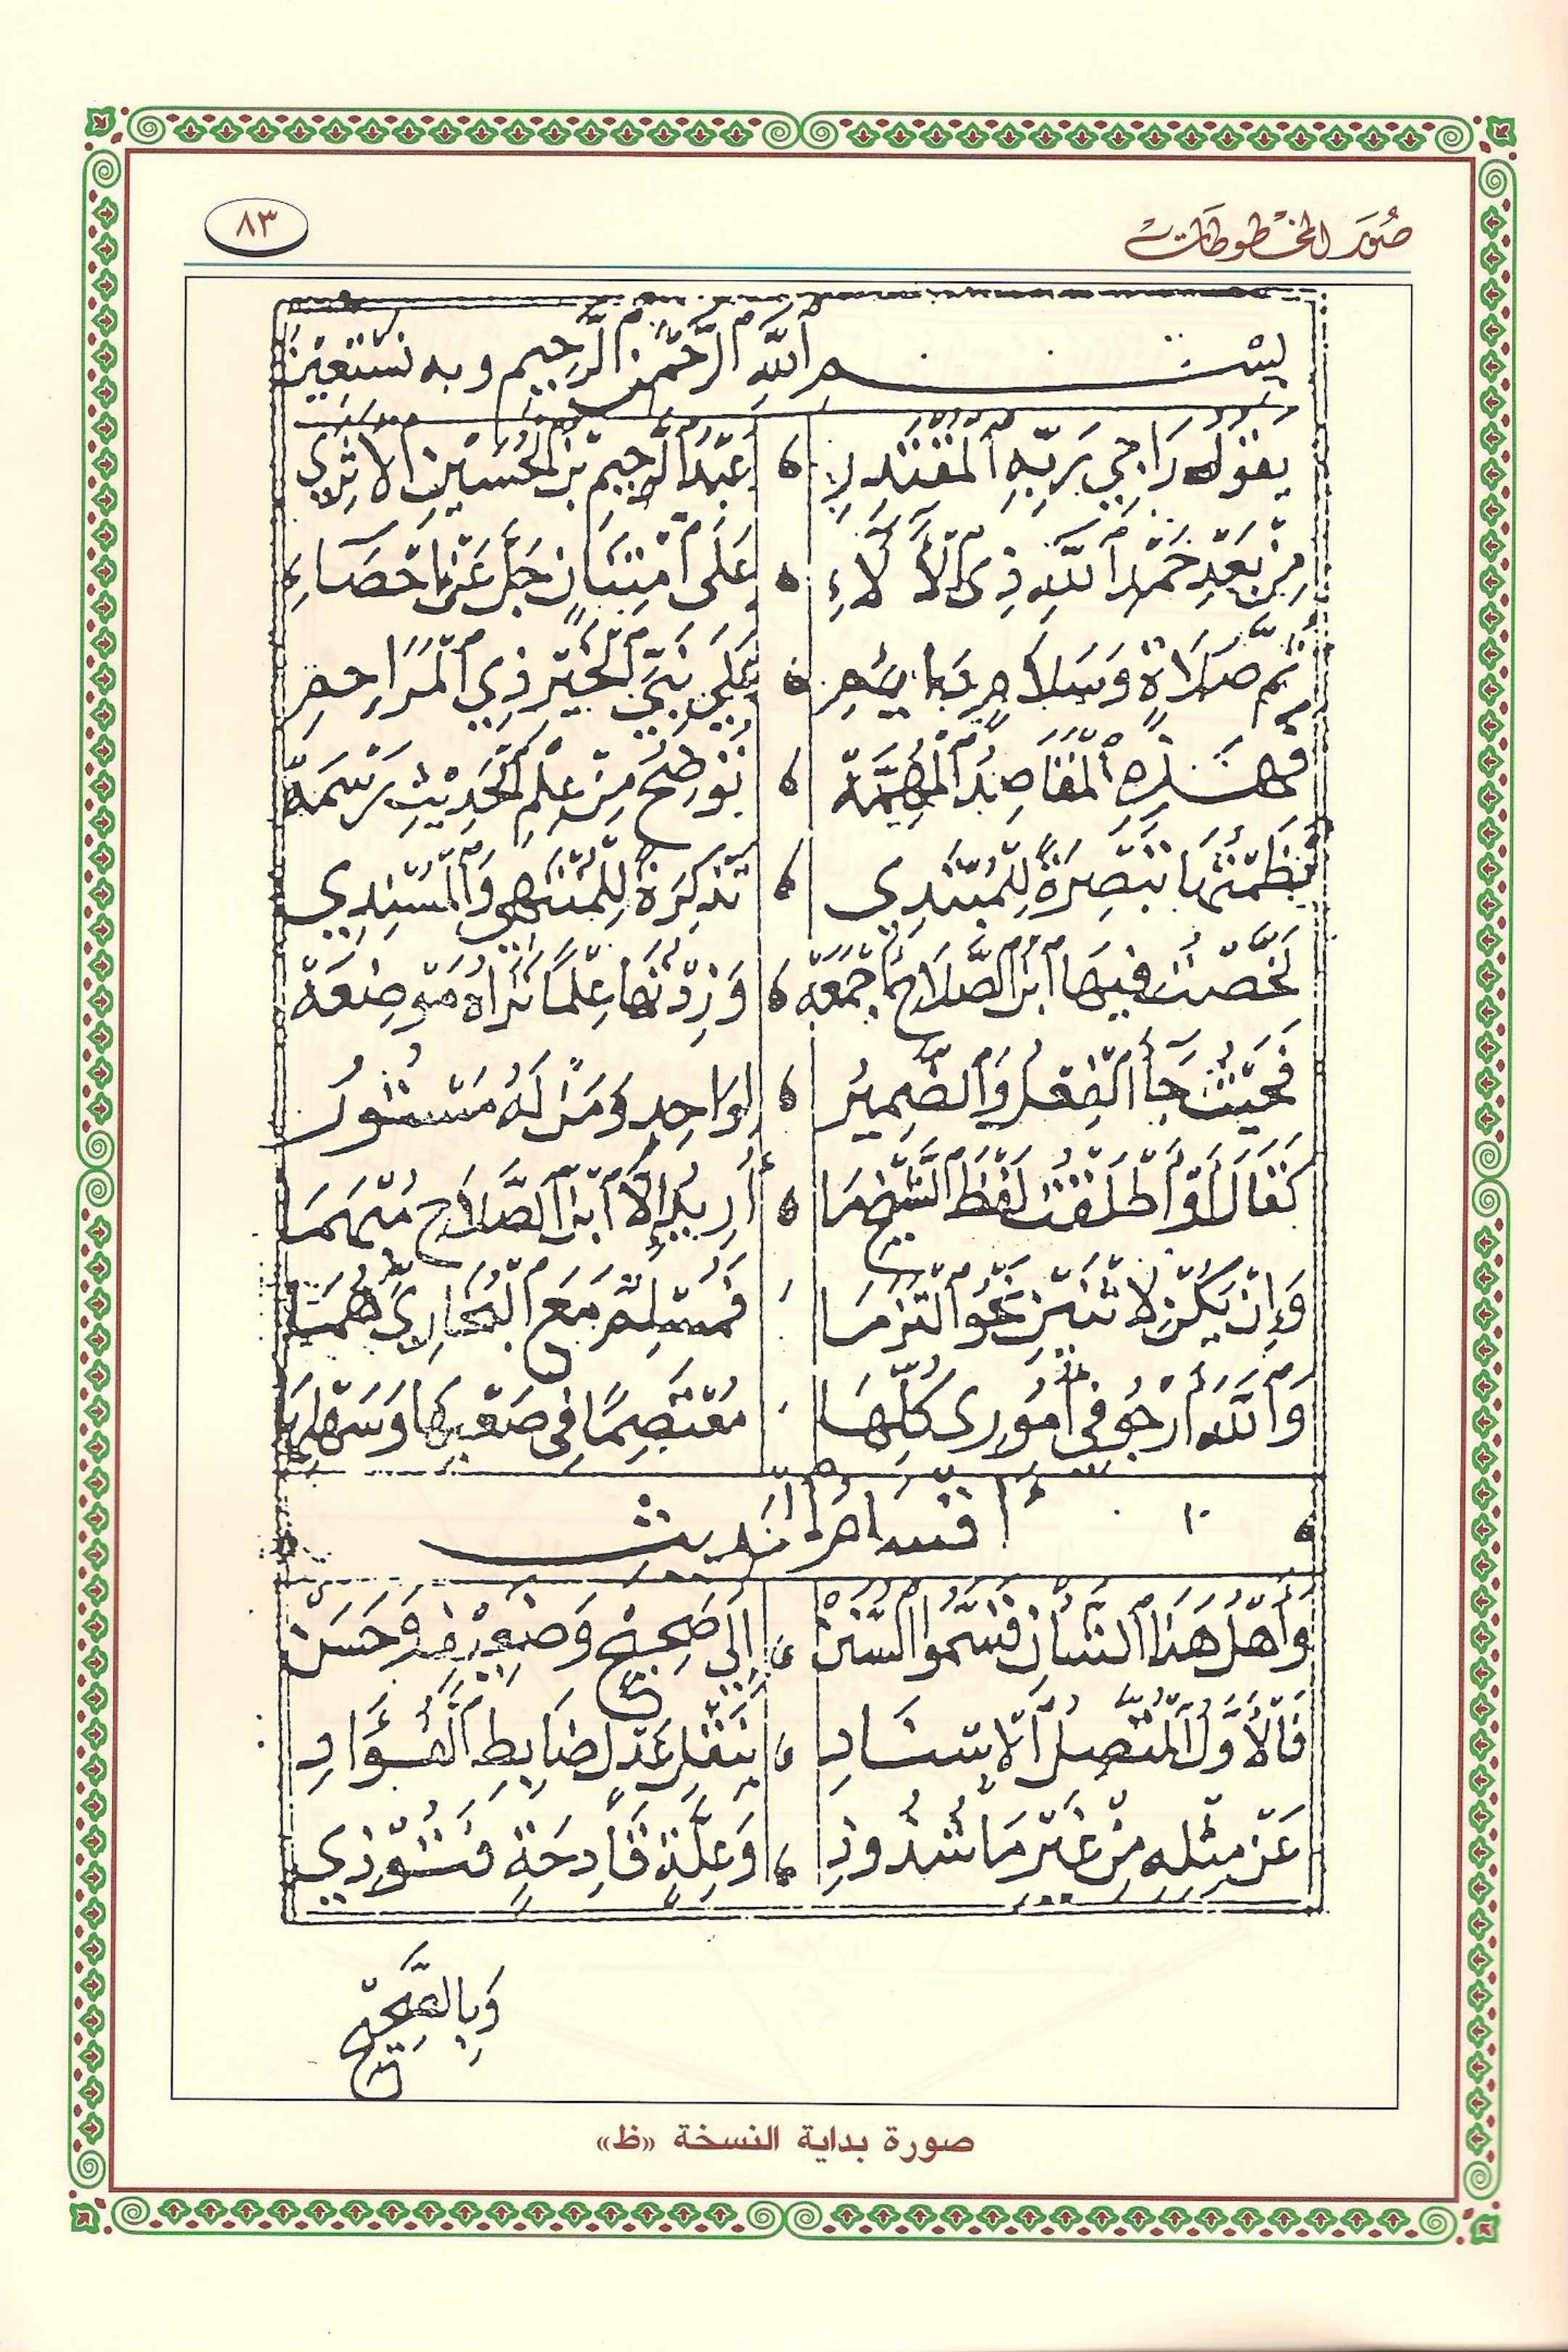 صُوَر المخطوطات
٨٣
بسم اللهِ الرَّحْمٰنِ الرَّحِيمِ وبه نَسْتَعِين
يقولُ رَاجِي رَبِّهِ المُقْتَدِرِ عَبْدُ الرَّحِيمِ بْنُ الحُسَيْنِ الأَثَرِي
مِنْ بَعْدِ حَمْدِ اللهِ ذِي الآلَاءِ عَلَى امْتِنَانٍ جَلَّ عَنْ إِحْصَاءِ
ثُمَّ صَلَاةٍ وَسَلَامٍ دَائِمِ عَلَى نَبِيِّ الخَيْرِ ذِي المَرَاحِمِ
فَهٰذِهِ المَقَاصِدُ المُهِمَّهْ تُوَضِحُ مِنْ عِلْمِ الحَدِيثِ رَسْمَهْ
نَظَمْتُهَا تَبْصِرَةً لِلْمُبْتَدِي تَذْكِرَةً لِلْمُنْتَهِي وَالمُسْنِدِي
لَخَّصْتُ فِيهَا ابْنَ الصَّلَاحِ أَجْمَعَهْ وَزِدْتُهَا عِلْمًا تَرَاهُ مَوْضِعَهْ
فَحَيْثُ جَا الفِعْلُ وَالضَّمِيرُ لِوَاحِدٍ وَمَنْ لَهُ مَسْتُورُ
كَقَالَ أَوْ أَطْلَقْتُ لَفْظَ الشَّيْخِ مَا أُرِيدُ إِلَّا ابْنَ الصَّلَاحِ مُبْهَمَا
وَإِنْ يَكُنْ لِاثْنَيْنِ نَحْوُ التَزَمَا فَمُسْلِمٌ مَعَ البُخَارِيِّ هُمَا
وَاللهَ أَرْجُو فِي أُمُورِي كُلِّهَا مُعْتَصِمًا فِي صَعْبِهَا وَسَهْلِهَا
١٠ أقسام الحديث
وَأَهْلُ هَذَا الشَّانِ قَسَّمُوا السُّنَنْ إِلَى صَحِيحٍ وَضَعِيفٍ وَحَسَنْ
فَالأَوَّلُ المُتَّصِلُ الإِسْنَادِ بِنَقْلِ عَدْلٍ ضَابِطِ الفُؤَادِ
عَنْ مِثْلِهِ مِنْ غَيْرِ مَا شُذُوذِ وَعِلَّةٍ قَادِحَةٍ فَتُوذِي
وَبِالصَّحِيحِ
صورة بداية النسخة «ظ»